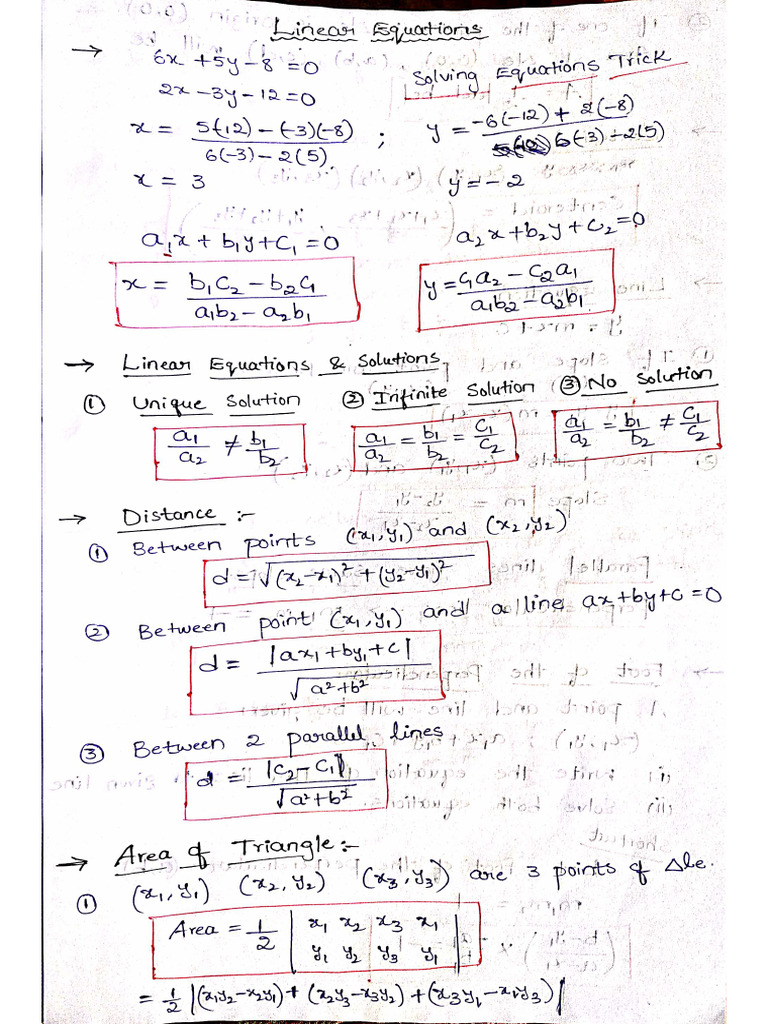 Linear Equations
→ 6x + 5y - 8 = 0
2x - 3y - 12 = 0
Solving Equations Trick
x = 5(-12) - (-3)(-8) / 6(-3) - 2(5) ; y = -6(-12) + 2(-8) / 6(-3) - 2(5)
x = 3 y = -2
a₁x + b₁y + c₁ = 0 a₂x + b₂y + c₂ = 0
x = b₁c₂ - b₂c₁ / a₁b₂ - a₂b₁ y = c₁a₂ - c₂a₁ / a₁b₂ - a₂b₁
→ Linear Equations & Solutions
① Unique Solution ② Infinite Solution ③ No Solution
a₁/a₂ ≠ b₁/b₂ a₁/a₂ = b₁/b₂ = c₁/c₂ a₁/a₂ = b₁/b₂ ≠ c₁/c₂
→ Distance :-
① Between points (x₁, y₁) and (x₂, y₂)
d = √(x₂-x₁)² + (y₂-y₁)²
② Between point (x₁, y₁) and a line ax + by + c = 0
d = |ax₁ + by₁ + c| / √a² + b²
③ Between 2 parallel lines
d = |c₂ - c₁| / √a² + b²
→ Area of Triangle :-
① (x₁, y₁) (x₂, y₂) (x₃, y₃) are 3 points of Δle.
Area = 1/2 | x₁ x₂ x₃ x₁ |
| y₁ y₂ y₃ y₁ |
= 1/2 |(x₁y₂ - x₂y₁) + (x₂y₃ - x₃y₂) + (x₃y₁ - x₁y₃)|